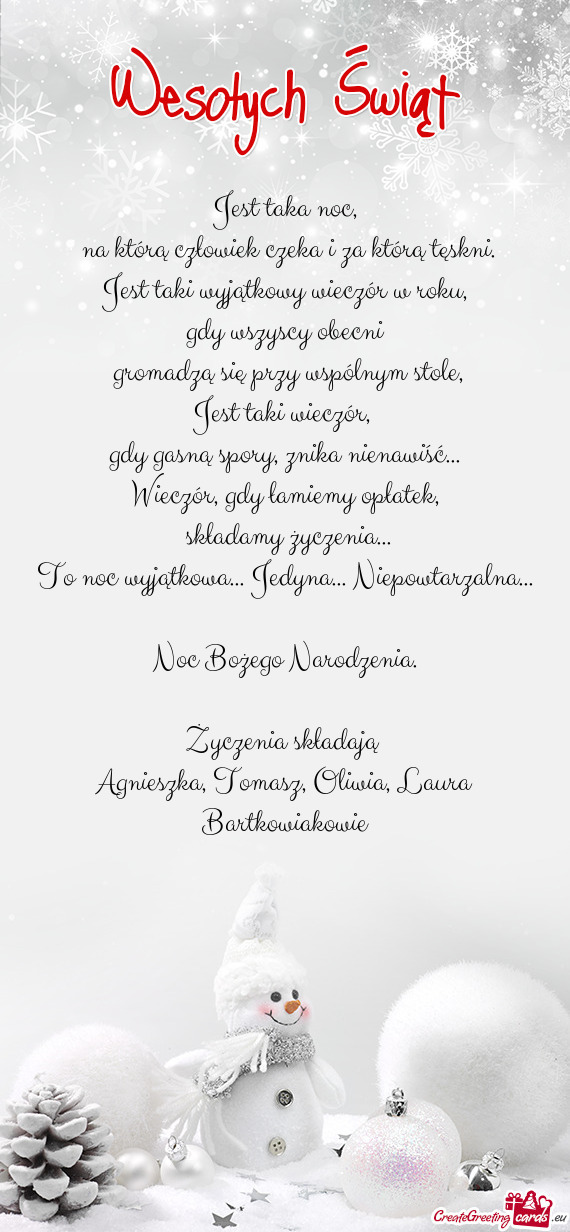 Wesołych Świąt
Jest taka noc,
na którą człowiek czeka i za którą tęskni.
Jest taki wyjątkowy wieczór w roku,
gdy wszyscy obecni
gromadzą się przy wspólnym stole,
Jest taki wieczór,
gdy gasną spory, znika nienawiść...
Wieczór, gdy łamiemy opłatek,
składamy życzenia...
To noc wyjątkowa... Jedyna... Niepowtarzalna...
Noc Bożego Narodzenia.
Życzenia składają
Agnieszka, Tomasz, Oliwia, Laura
Bartkowiakowie
CreateGreeting cards .eu